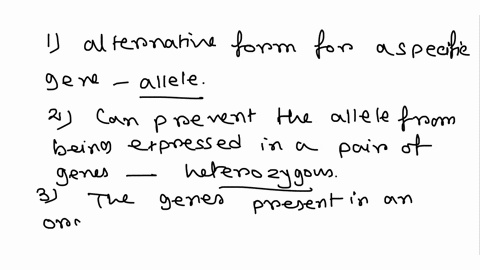 1) alternative form for a specific
gene - allele.
2) Can prevent the allele from
being expressed in a pair of
genes - heterozygous.
3) The genes present in an